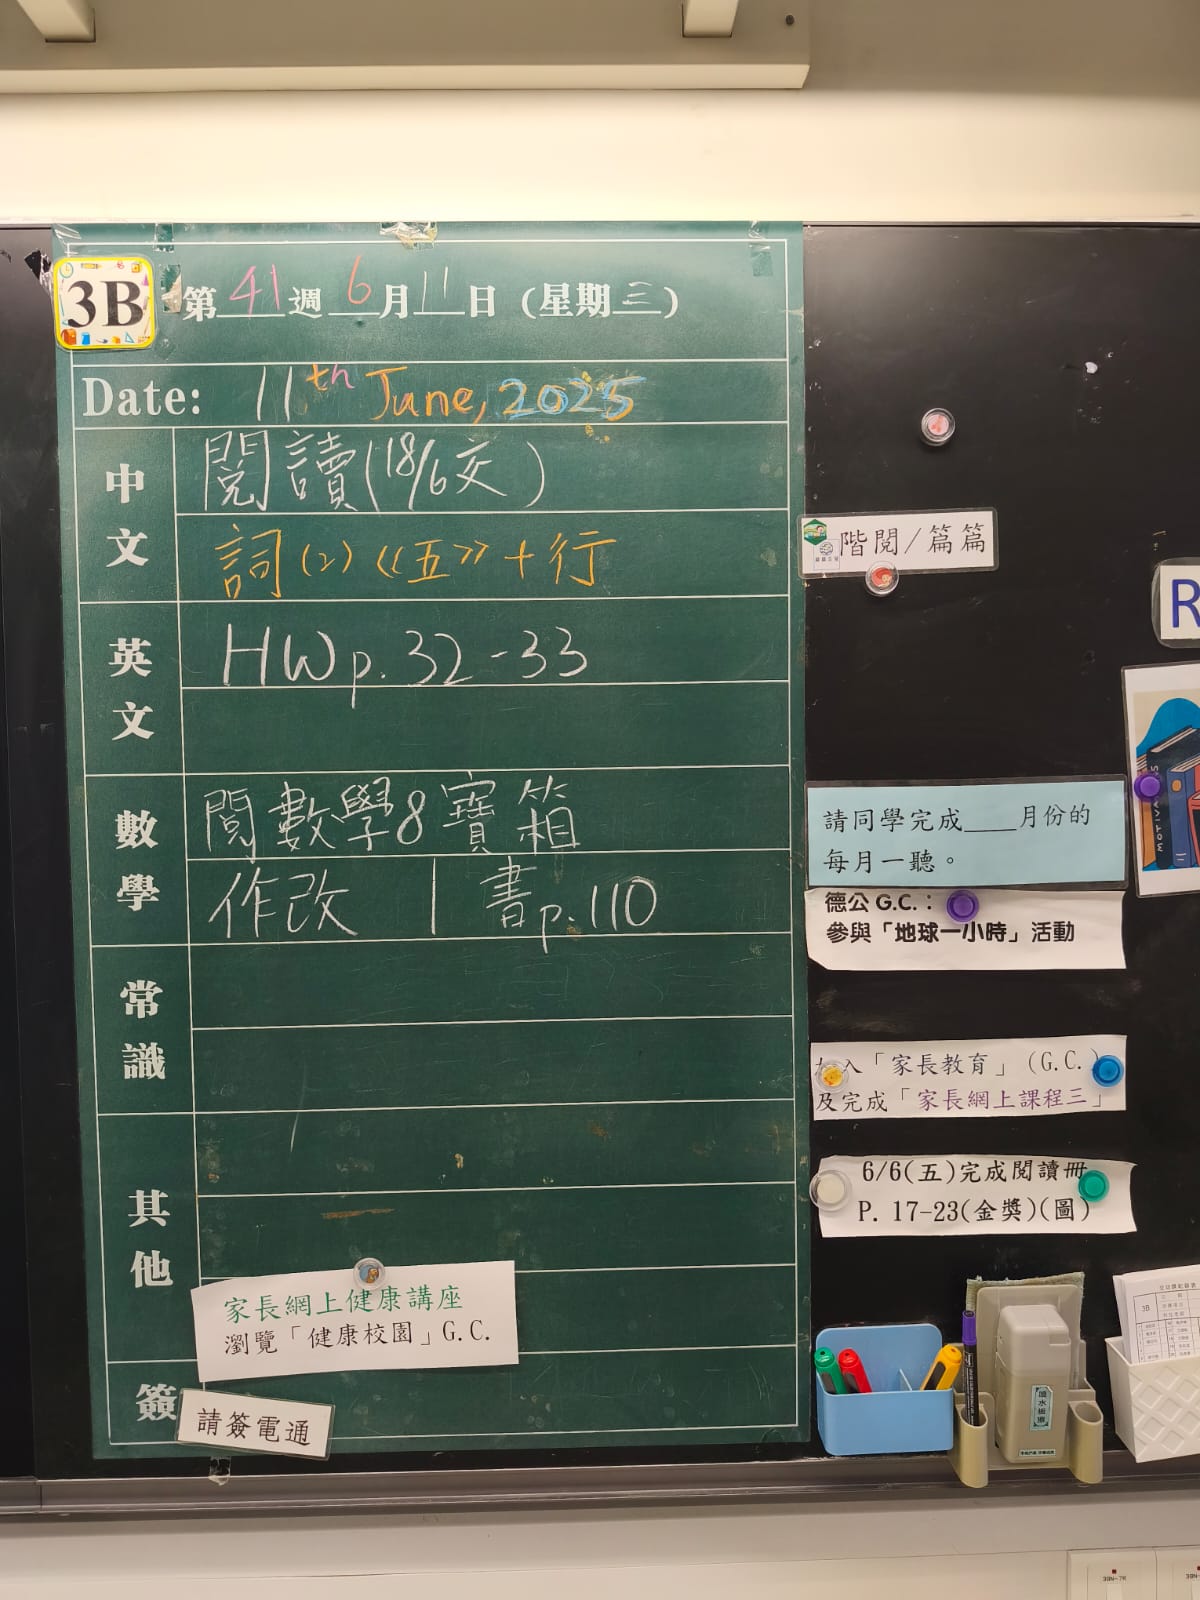 3B
第41週6月11日(星期三)
Date: 11th June, 2025
中文
閱讀(18/6交)
詞(2)《五》+行
英文
HW p.32-33
數學
閱數學8寶箱
作改 | 書p.110
常識
其他
家長網上健康講座
瀏覽「健康校園」G.C.
簽
請簽電通
階閱/篇篇
R
請同學完成____月份的
每月一聽。
德公 G.C.：
參與「地球一小時」活動
入「家長教育」(G.C.)
及完成「家長網上課程三」
6/6(五)完成閱讀冊
P. 17-23(金獎)(圖)
3B